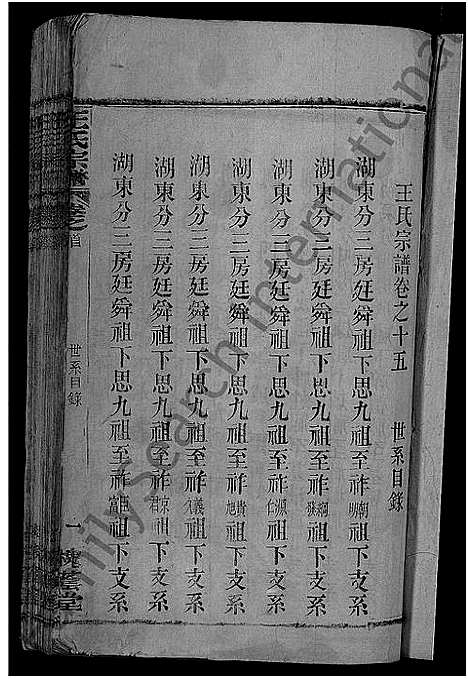 王氏宗譜卷之十五 世系目錄
湖東分三房廷舜祖下思九祖至祚朝明祖下支系
湖東分三房廷舜祖下思九祖至祚綱祖下支系
湖東分三房廷舜祖下思九祖至祚源仁祖下支系
湖東分三房廷舜祖下思九祖至祚貴祖下支系
湖東分三房廷舜祖下思九祖至祚義祖下支系
湖東分三房廷舜祖下思九祖至祚京君祖下支系
湖東分三房廷舜祖下思九祖至祚富祖下支系
王氏宗譜 卷之首 世系目錄 一 槐蔭堂
Family Search International